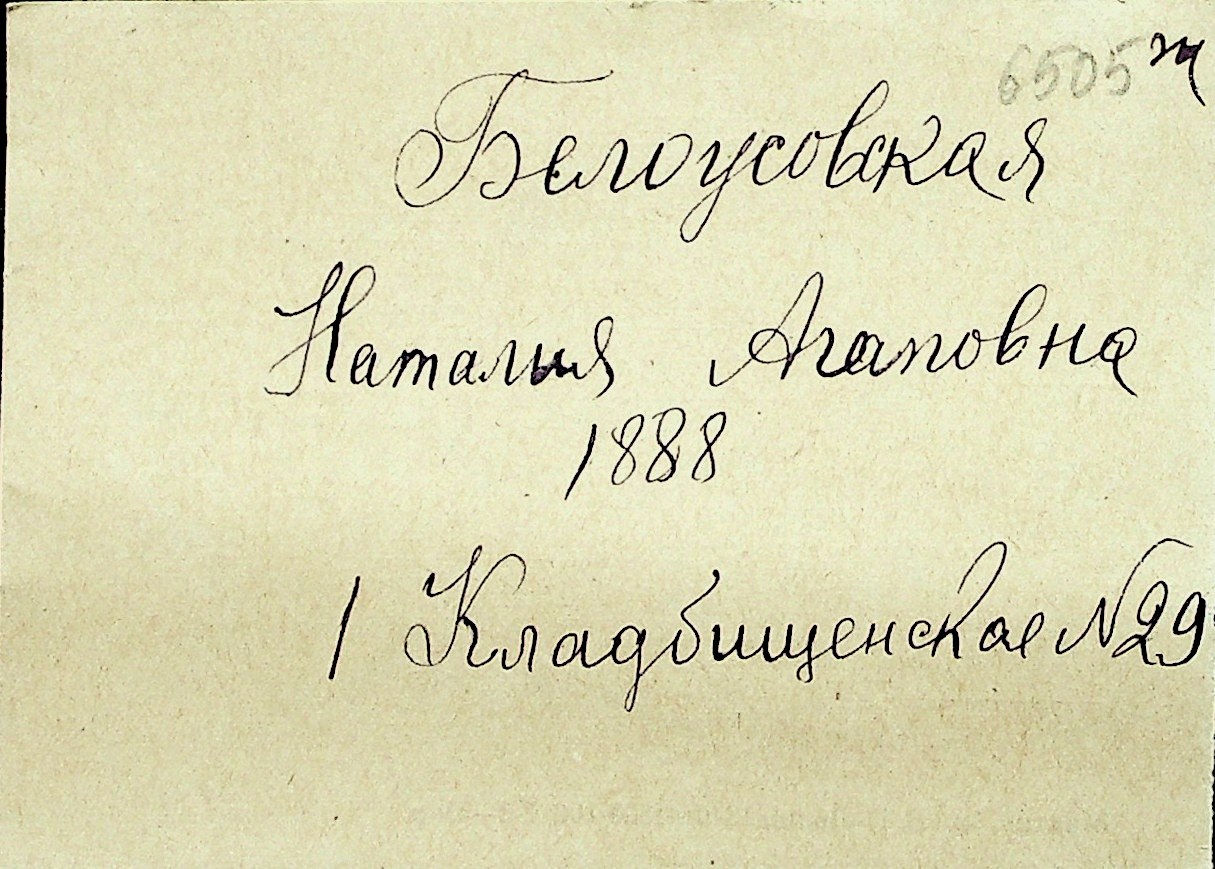 6505 ж
Белоусовская
Наталия Агаповна
1888
1 Кладбищенское №29